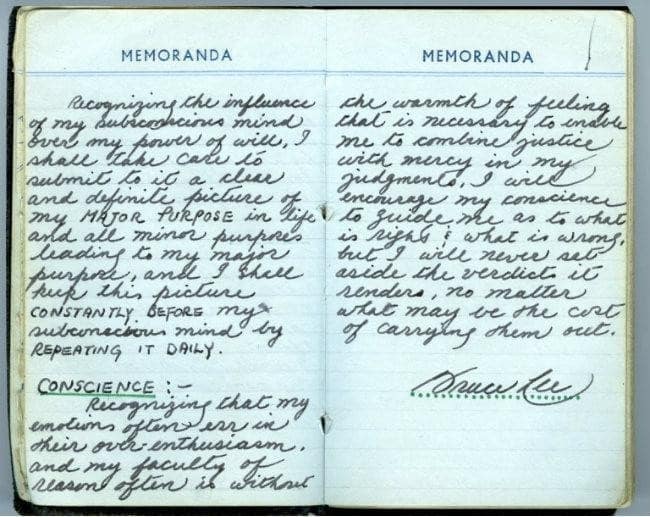 MEMORANDA
Recognizing the influence
of my subconscious mind
over my power of will, I
shall take care to
submit to it a clear
and definite picture of
my MAJOR PURPOSE in life
and all minor purposes
leading to my major
purpose, and I shall
keep this picture
CONSTANTLY BEFORE my
subconscious mind by
REPEATING IT DAILY.
CONSCIENCE :-
Recognizing that my
emotions often err in
their over-enthusiasm,
and my faculty of
reason often is without
MEMORANDA
the warmth of feeling
that is necessary to enable
me to combine justice
with mercy in my
judgments, I will
encourage my conscience
to guide me as to what
is right & what is wrong,
but I will never set
aside the verdict it
renders, no matter
what may be the cost
of carrying them out.
Bruce Lee